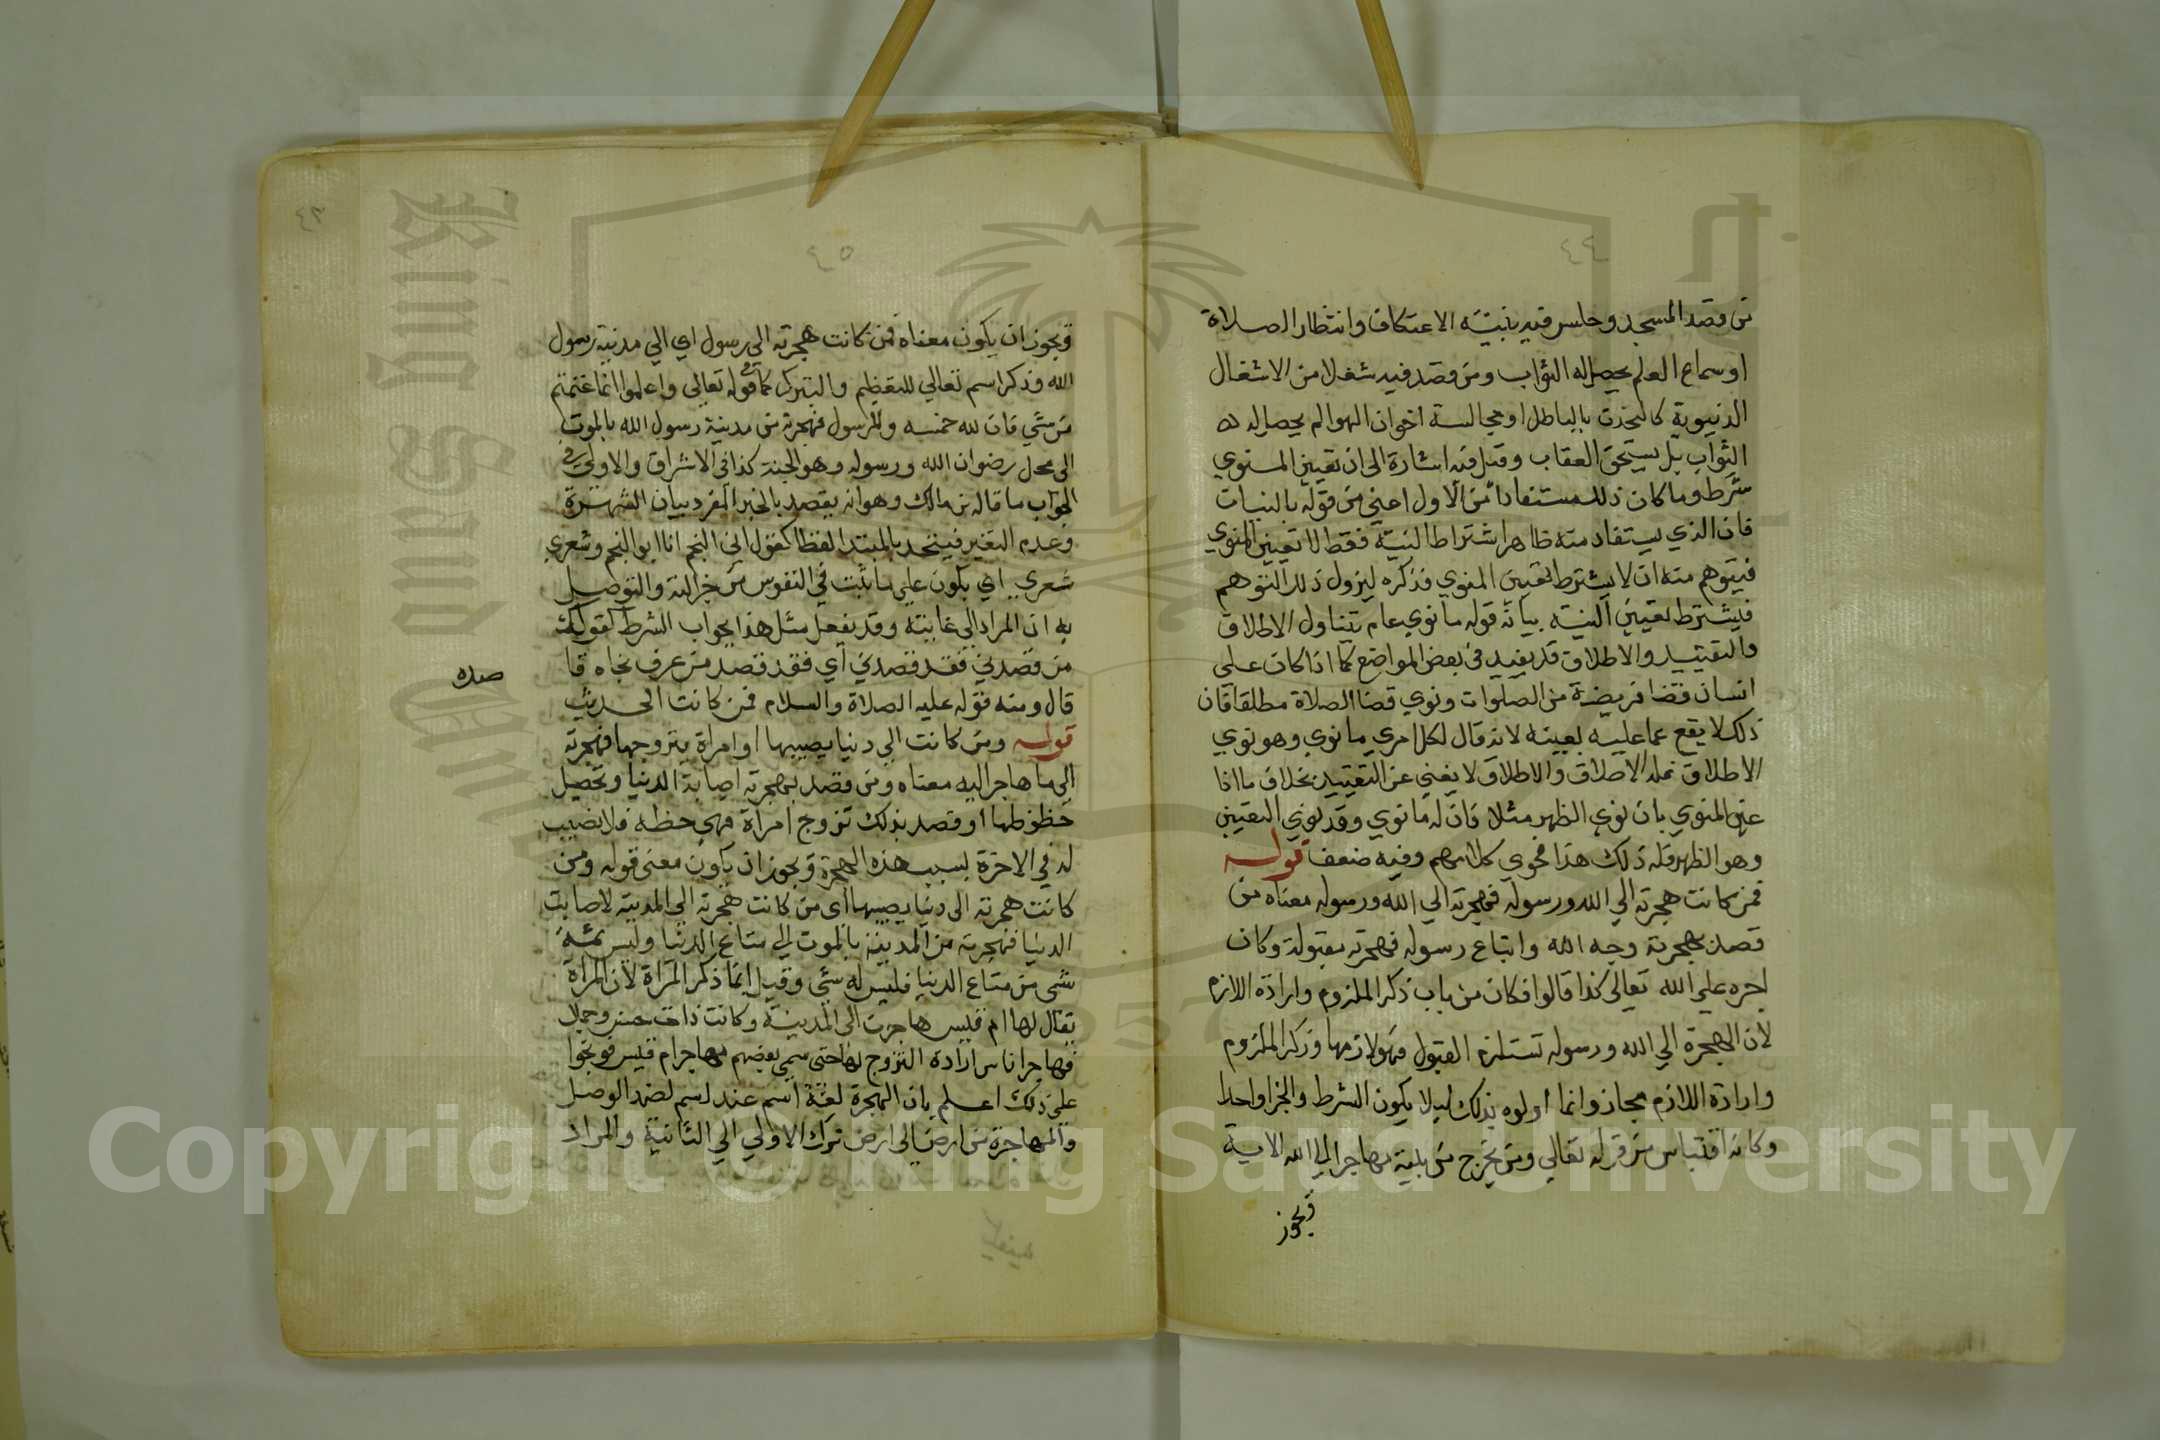 ٤٤
من قصد المسجد وجلس فيه بنيته الاعتكاف وانتظار الصلاة
او سماع العلم يحصل له الثواب ومن قصد فيه شغلا من الاشغال
الدنيوية كالتحدث بالباطل او مجالسة اخوان الهوا لم يحصل له
الثواب بل يستحق العقاب وقيل فيه اشارة الى ان تعيين المنوي
شرط وما كان ذلك مستفادا من الاول اعني من قوله بالنيات
فان الذي يستفاد منه ظاهرا اشتراط النية فقط لا تعيين المنوي
فيتوهم منه ان لا يشترط تعيين المنوي فذكره ليزول ذلك التوهم
فيشترط تعيين النية بيانه قوله ما نوي عام يتناول الاطلاق
والتقييد والاطلاق قد يفيد في بعض المواضع كما اذا كان على
انسان قضا فريضة من الصلوات ونوي قضا الصلاة مطلقا فان
ذلك لا يقع عما عليه بعينه لانه قال لكل امري ما نوي وهو نوي
الاطلاق فله الاطلاق والاطلاق لا يغني عن التقييد بخلاف ما اذا
عين المنوي بان نوي الظهر مثلا فان له ما نوي وقد نوي التعيين
وهو الظهر فله ذلك هذا فحوي كلامهم وفيه ضعف قوله
فمن كانت هجرته الي الله ورسوله فهجرته الي الله ورسوله معناه من
قصد بهجرته وجه الله واتباع رسوله فهجرته مقبولة وكان
اجره علي الله تعالي كذا قالوا فكان من باب ذكر الملزوم وارادة اللازم
لان الهجرة الي الله ورسوله تستلزم القبول فهو لازمها وذكر الملزوم
وارادة اللازم مجاز وانما اولوه بذلك ليلا يكون الشرط والجزا واحدا
وكانه اقتباس من قوله تعالي ومن يخرج من بيته مهاجرا الي الله الاية
فيجوز
٤٣
٤٥
فيجوز ان يكون معناه فمن كانت هجرته الي رسول اي الي مدينة رسول
الله وذكر اسم تعالي للتعظيم والتبرك كما في قوله تعالي واعلموا انما غنمتم
من شي فان لله خمسه وللرسول فهجرته من مدينة رسول الله بالموت
الى محل رضوان الله ورسوله وهو الجنة كذا في الاشراق والاولى في
الجواب ما قاله بن مالك وهو انه يقصد بالخبر المفرد بيان الشهرة
وعدم التغير فيتحد بالمبتدا لفظا كقول ابي النجم انا ابو النجم وشعري
شعري اي يكون علي ما ثبت في النفوس من جزالته والتوصل
به ان المراد الي غايته وقد يفعل مثل هذا بجواب الشرط كقولك
من قصدني فقد قصدني اي فقد قصد من عرف نجاه قا
قال ومنه قوله عليه الصلاة والسلام فمن كانت الحديث
صده
قوله ومن كانت الي دنيا يصيبها او امراة يتزوجها فهجرته
الى ما هاجر اليه معناه ومن قصد بهجرته اصابة الدنيا وتحصيل
حظوظها او قصد بذلك تزوج امراة فهي حظه فلا نصيب
له في الاخرة بسبب هذه الهجرة ويجوز ان يكون معني قوله ومن
كانت هجرته الى دنيا يصيبها اى من كانت هجرته الي المدينة لاصابت
الدنيا فهجرته من المدينة بالموت الي متاع الدنيا وليس ثمة
شي من متاع الدنيا فليس له شي وقيل انما ذكر المراة لان المراة
يقال لها ام قيس هاجرت الى المدينة وكانت ذات حسن وجمال
فهاجر اناس ارادة التزوج بها حتي سمي بعضهم مهاجر ام قيس فوبخوا
علي ذلك اعلم بان الهجرة لغة اسم عند اسم لضد الوصل
والمهاجرة من ارض الى ارض ترك الاولي الي الثانية والمراد